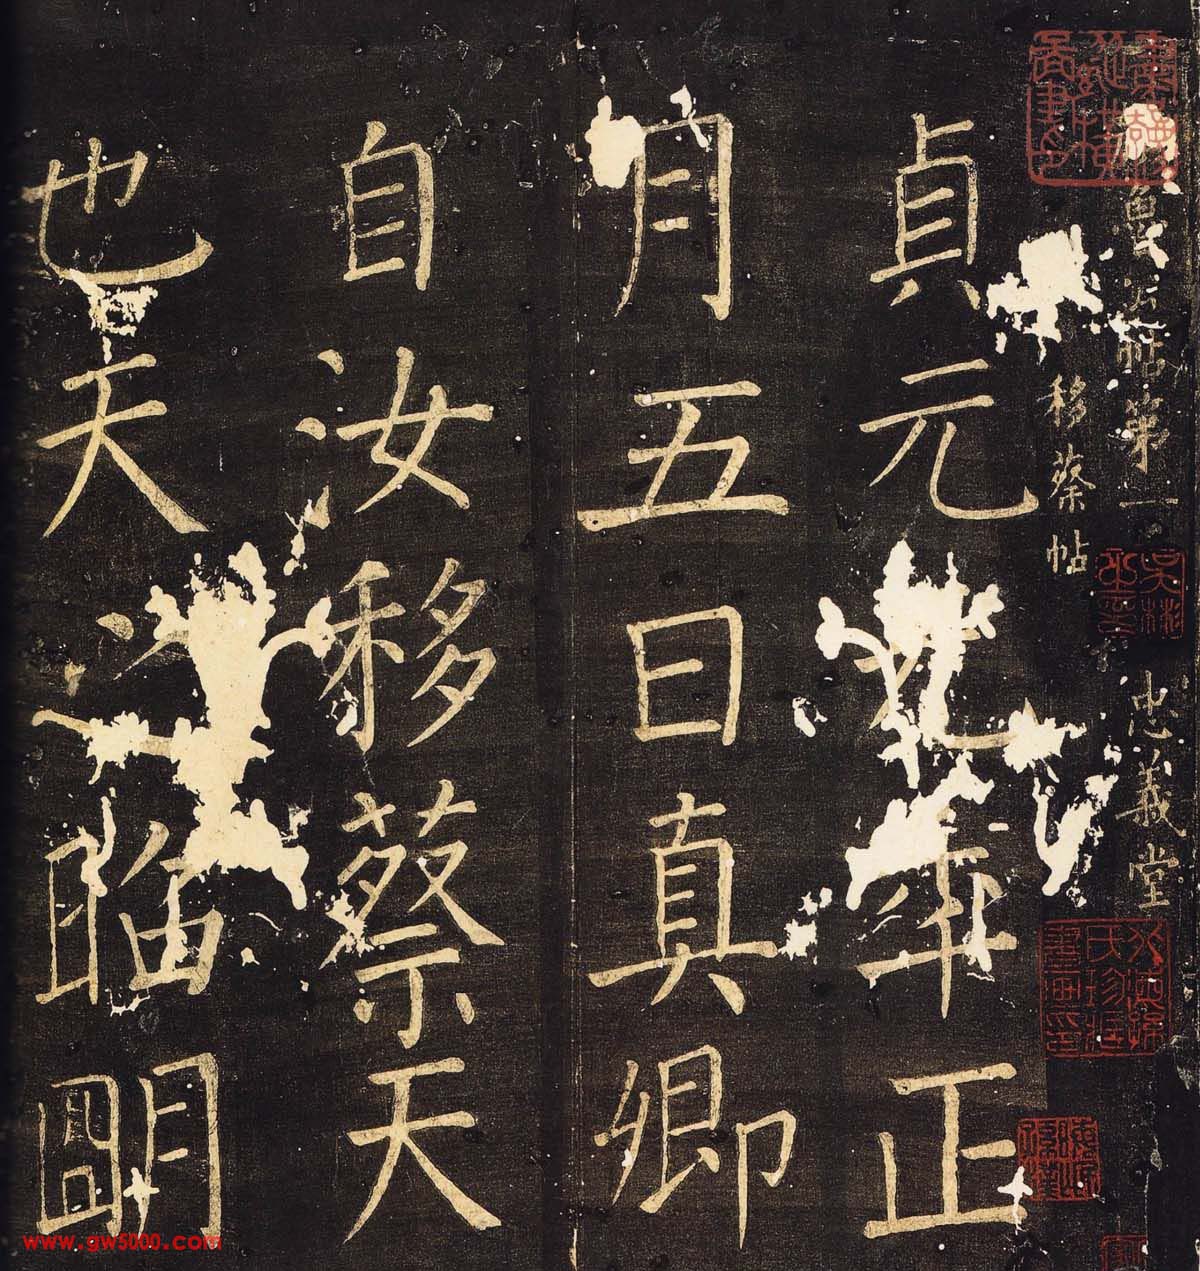 魯公帖第一 忠義堂
移蔡帖
貞元元年正
月五日真卿
自汝移蔡天
也天之昭明
www.gw5000.com